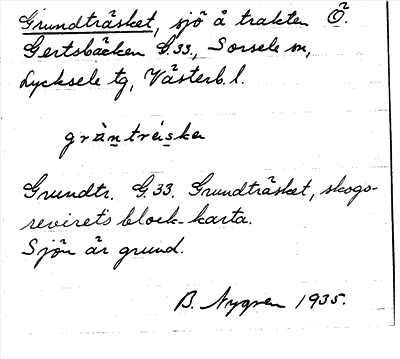 Grundträsket, sjö å trakten Ö.
Gertsbäcken G.33., Sorsele sn,
Lycksele tg, Västerb. l.
gràntrǽska
Grundtr. G.33. Grundträsket, skogs-
revirets block-karta.
Sjön är grund.
B. Nygren 1935.